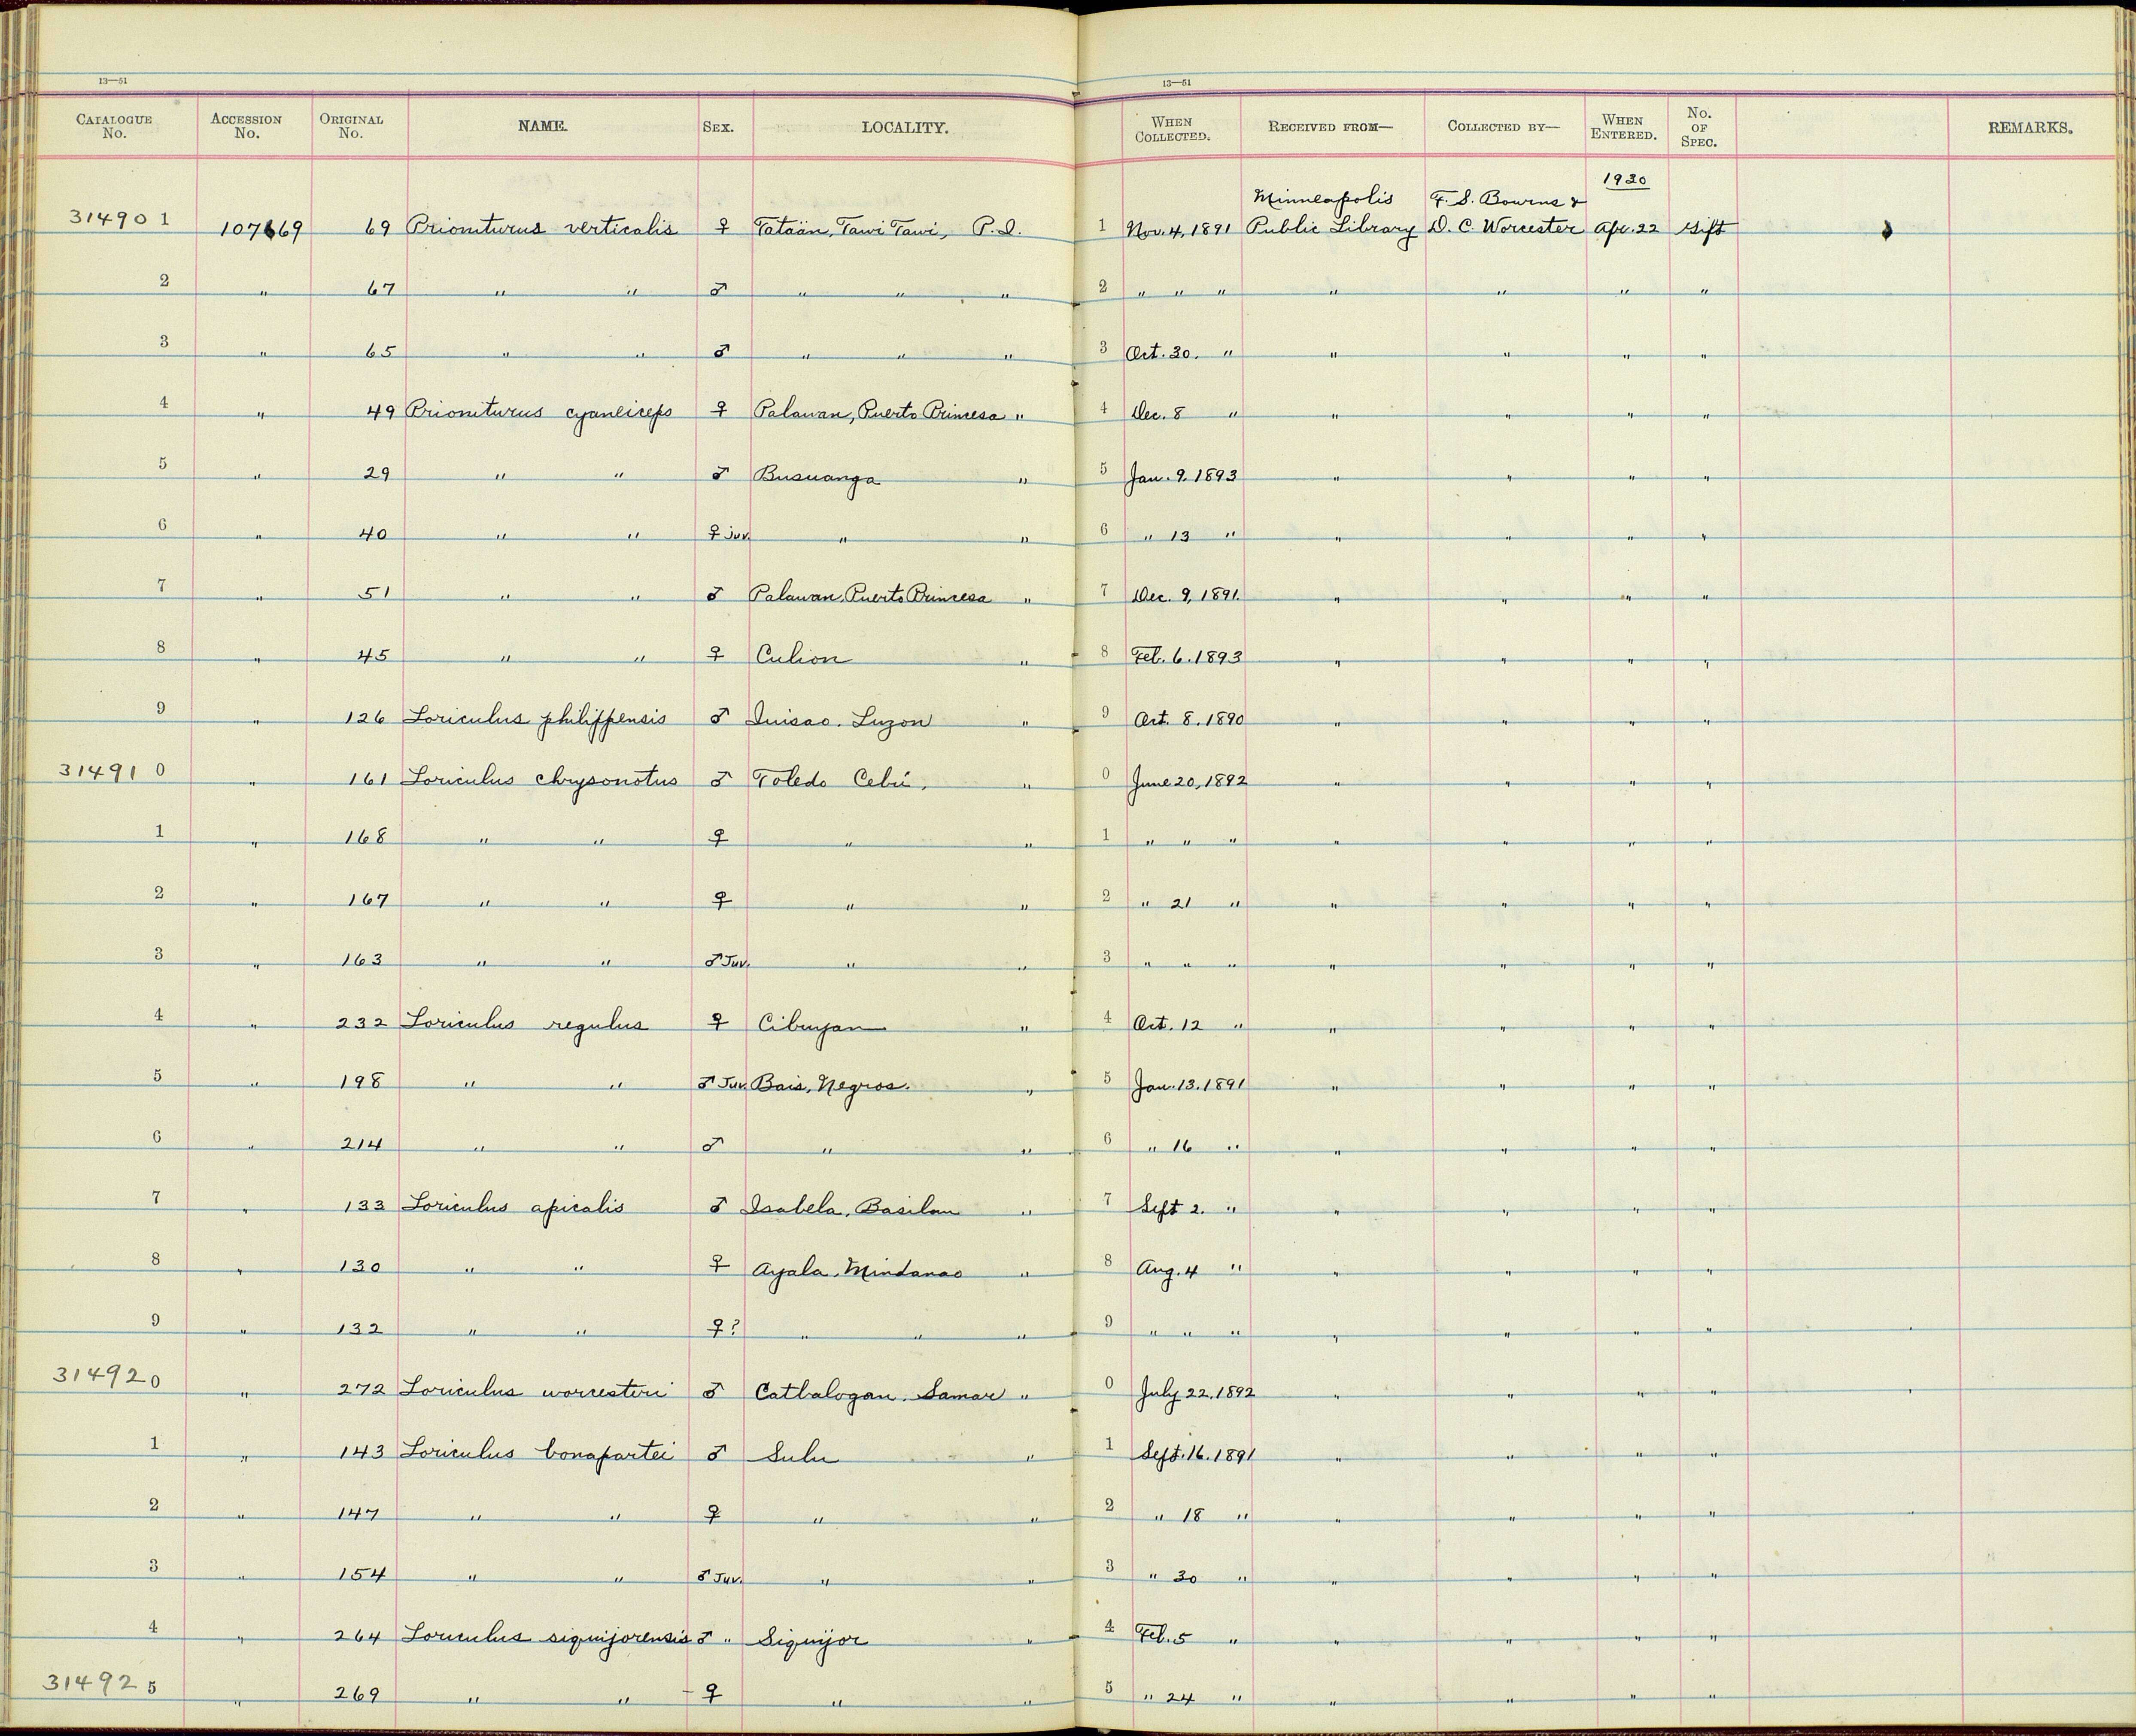 13—51 13—51
CATALOGUE No. ACCESSION No. ORIGINAL No. NAME. SEX. LOCALITY. WHEN COLLECTED. RECEIVED FROM— COLLECTED BY— WHEN ENTERED. No. OF SPEC. REMARKS.
1920
Minneapolis F. S. Bourns &
314901 107669 69 Prioniturus verticalis ♀ Tataän, Tawi Tawi, P.I. 1 Nov. 4, 1891 Public Library D. C. Worcester Apr. 22 Gift
2 " 67 " " ♂ " " " 2 " " " " " " "
3 " 65 " " ♂ " " " 3 Oct. 30. " " " " "
4 " 49 Prioniturus cyaneiceps ♀ Palawan, Puerto Princesa " 4 Dec. 8 " " " " "
5 " 29 " " ♂ Busuanga " 5 Jan. 9, 1893 " " " "
6 " 40 " " ♀ Juv. " " 6 " 13 " " " " "
7 " 51 " " ♂ Palawan, Puerto Princesa " 7 Dec. 9, 1891. " " " "
8 " 45 " " ♀ Culion " 8 Feb. 6. 1893 " " " "
9 " 126 Loriculus philippensis ♂ , Luzon " 9 Oct. 8. 1890 " " " "
314910 " 161 Loriculus chrysonotus ♂ Toledo Cebú, " 0 June 20, 1892 " " " "
1 " 168 " " ♀ " " 1 " " " " " " "
2 " 167 " " ♀ " " 2 " 21 " " " " "
3 " 163 " " ♂ Juv. " " 3 " " " " " " "
4 " 232 Loriculus regulus ♀ Cibuyan " 4 Oct. 12 " " " " "
5 " 198 " " ♂ Juv. Bais, Negros. " 5 Jan. 13. 1891 " " " "
6 " 214 " " ♂ " " 6 " 16 " " " " "
7 " 133 Loriculus apicalis ♂ Isabela, Basilan " 7 Sept 2. " " " " "
8 " 130 " " ♀ Ayala, Mindanao " 8 Aug. 4 " " " " "
9 " 132 " " ♀? " " " 9 " " " " " " "
314920 " 272 Loriculus worcesteri ♂ Catbalogan, Samar " 0 July 22, 1892 " " " "
1 " 143 Loriculus bonapartei ♂ Sulu " 1 Sept. 16. 1891 " " " "
2 " 147 " " ♀ " " 2 " 18 " " " " "
3 " 154 " " ♂ Juv. " " 3 " 30 " " " " "
4 " 264 Loriculus siquijorensis ♂ " Siquijor " 4 Feb. 5 " " " " "
314925 " 269 " " ♀ " " 5 " 24 " " " " "